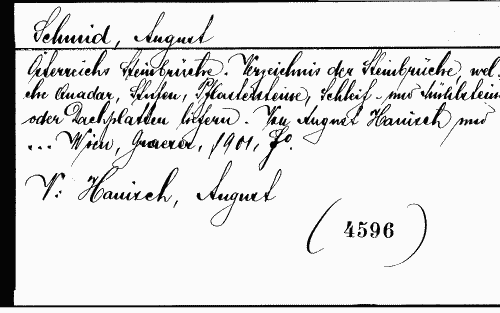 Schmid, August
Österreichs Steinbrüche. Verzeichnis der Steinbrüche, wel-
che Quadar, Stufen, Pflastersteine, Schleif- und Mühlstein
oder Dachplatten liefern. Von August Hanisch und
... Wien, Graeser, 1901, 8°.
V: Hanisch, August
(4596)